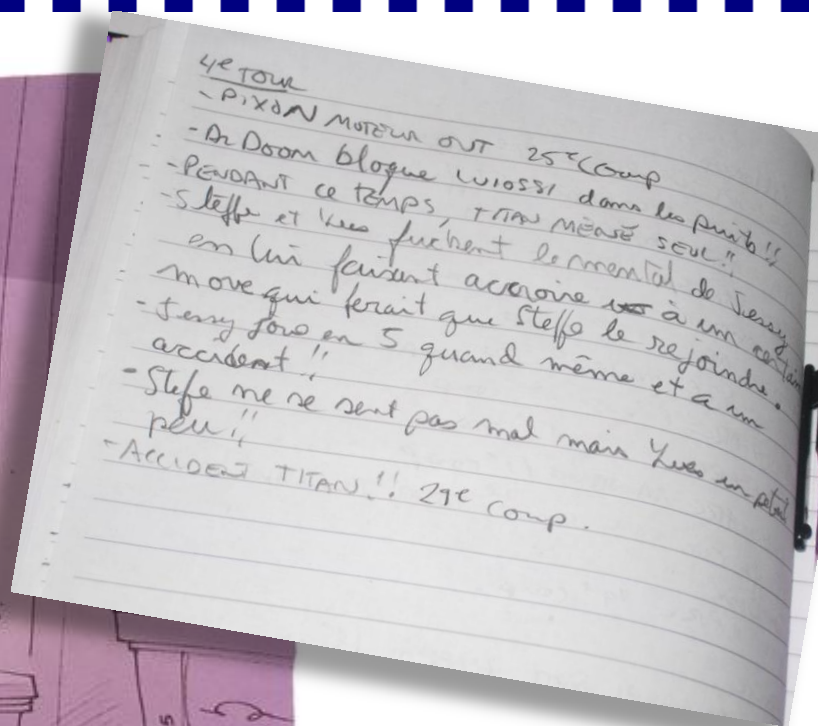 4e TOUR
- PIXON MOTEUR OUT 25e Coup
- Dr Doom bloque LUIOSSI dans les puits!!
- PENDANT ce TEMPS, TITAN MÈNE SEUL!!
- Steffe et Yves fuckent le mental de Jessy
en lui faisant accroire à un certain
move qui ferait que Steffe le rejoindre.
- Jessy joue en 5 quand même et a un
accident!!
- Stefe ne se sent pas mal mais Yves un petit
peu!!
- ACCIDENT TITAN!! 29e coup.